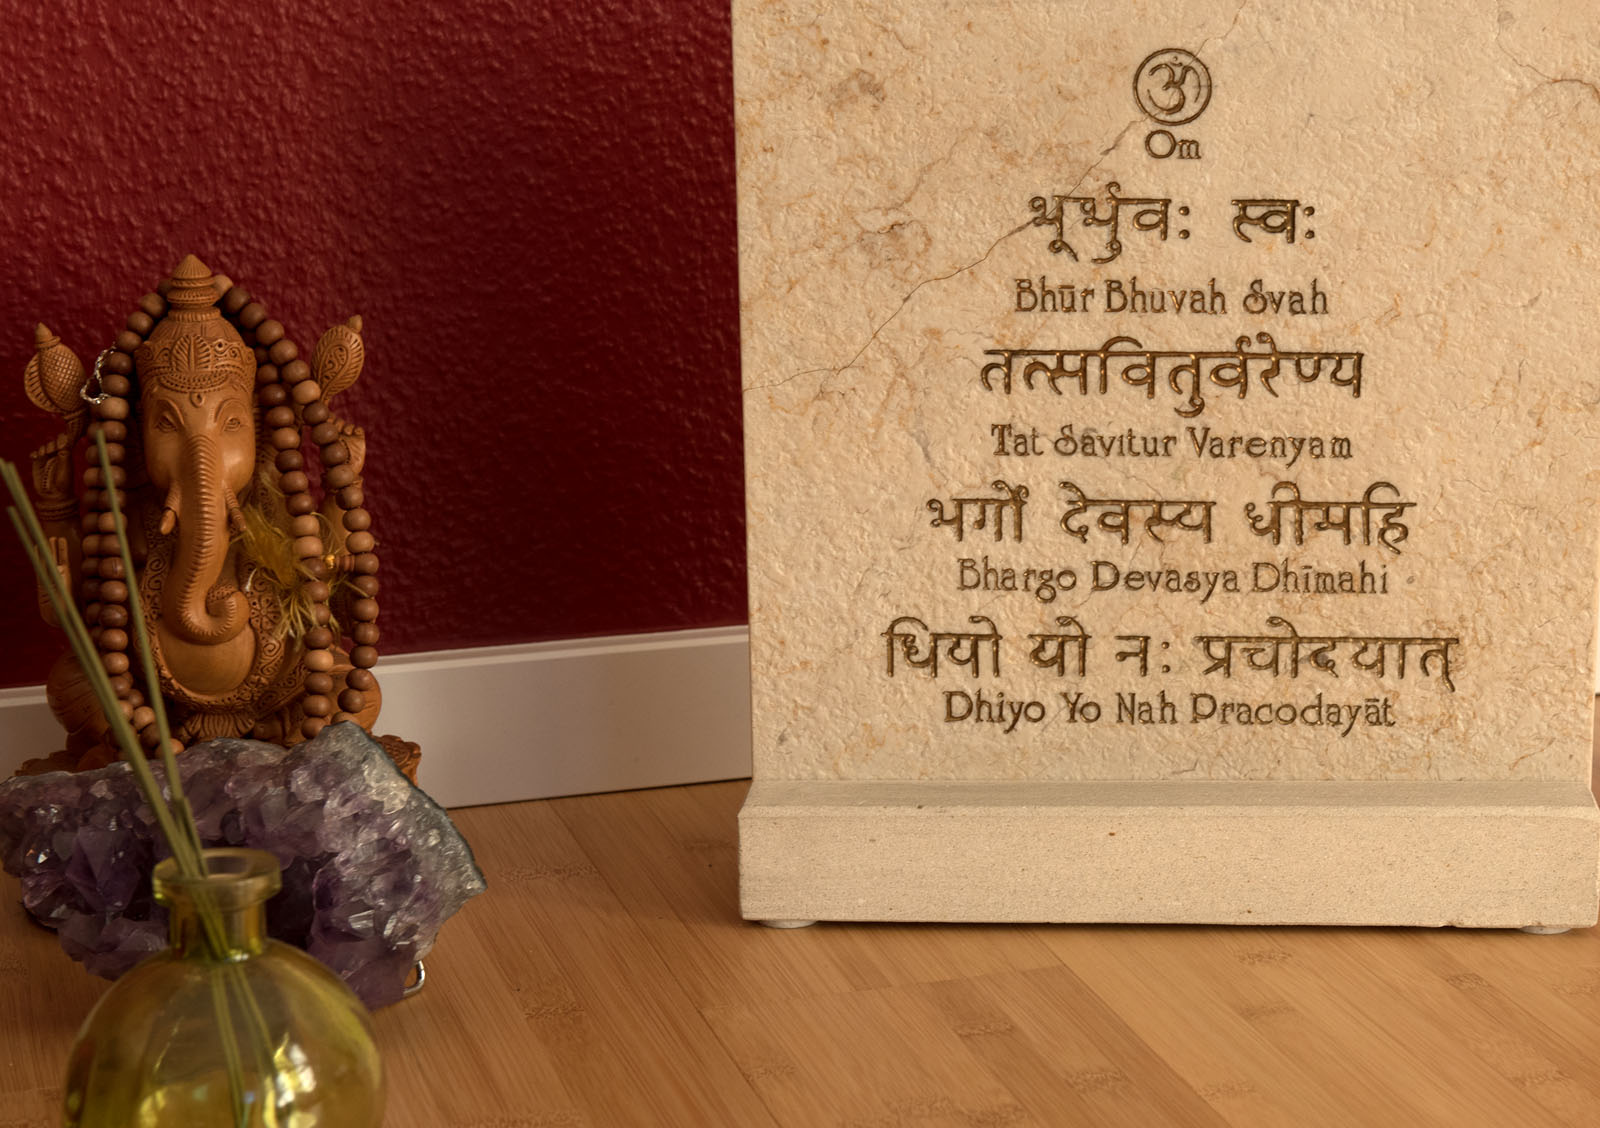 ॐ
Om
भूर्भुवः स्वः
Bhūr Bhuvah Svah
तत्सवितुर्वरेण्य
Tat Savitur Varenyam
भर्गो देवस्य धीमहि
Bhargo Devasya Dhīmahi
धियो यो नः प्रचोदयात्
Dhiyo Yo Nah Pracodayāt